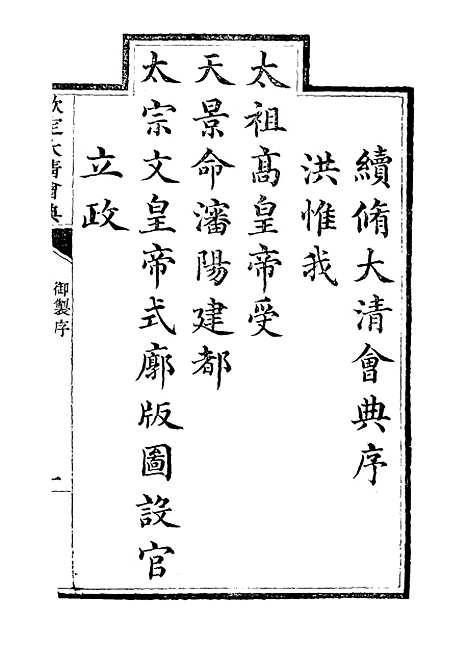 續脩大清會典序
洪惟我
太祖高皇帝受
天景命瀋陽建都
太宗文皇帝式廓版圖設官
立政
欽定大清會典
御製序
一